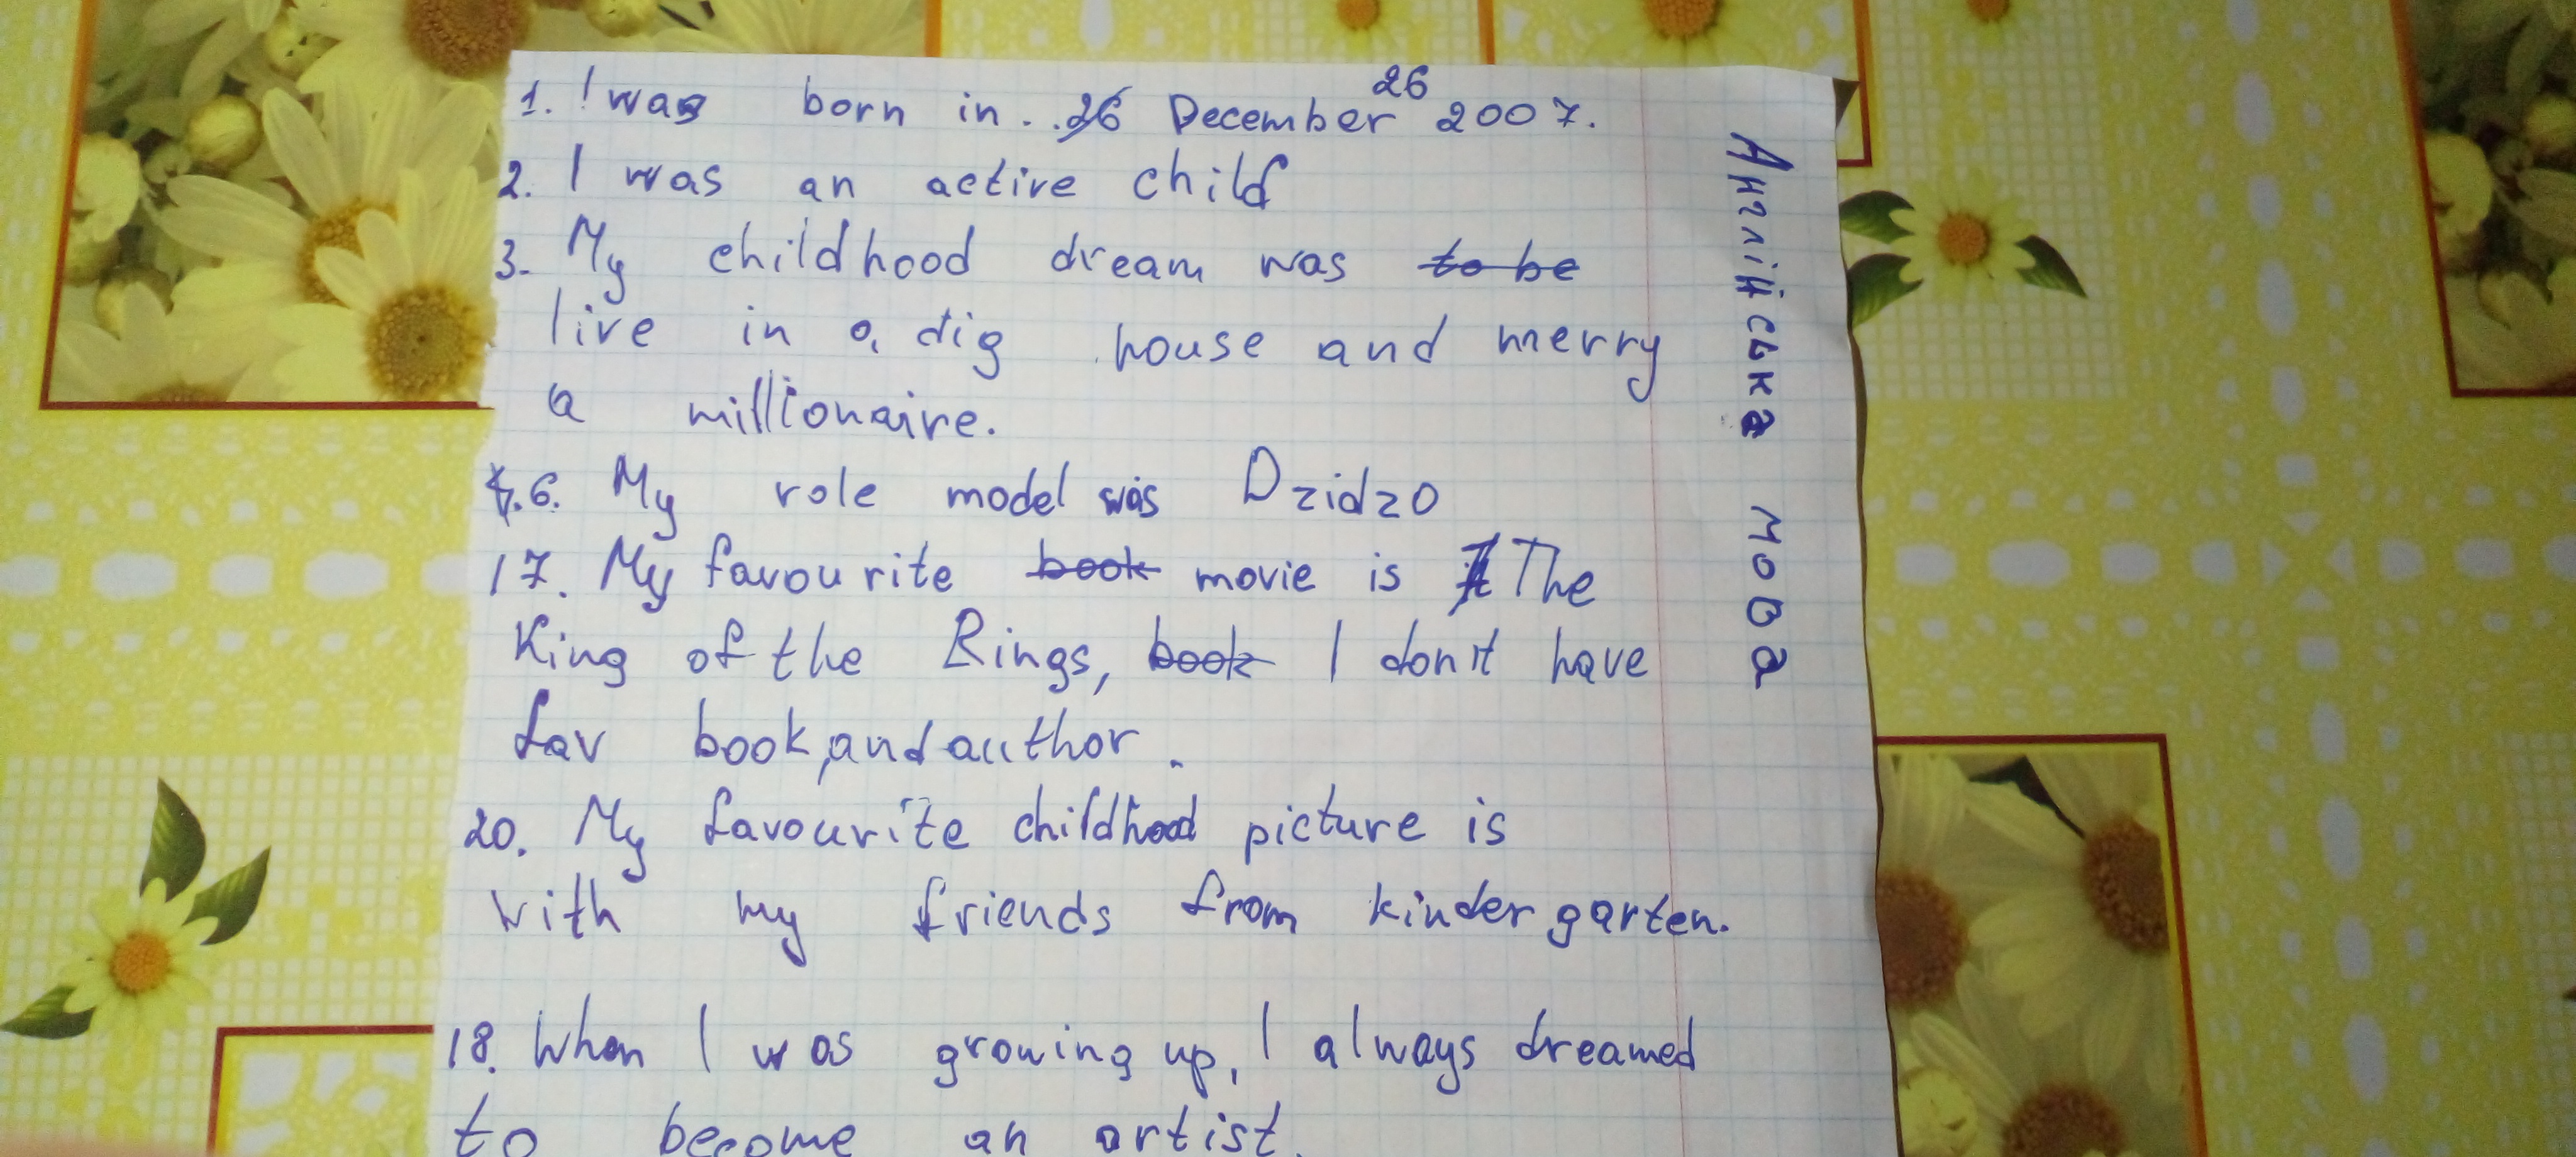 1. I was born in . . 26 December 26 2007.
2. I was an active child
3. My childhood dream was to be
live in a dig house and merry
a millionaire.
6. My role model was Dzidzo
17. My favourite book movie is The
King of the Rings, book I don't have
fav book, and author.
20. My favourite childhood picture is
with my friends from kindergarten.
18. When I was growing up, I always dreamed
to become an artist.
Англійська мова